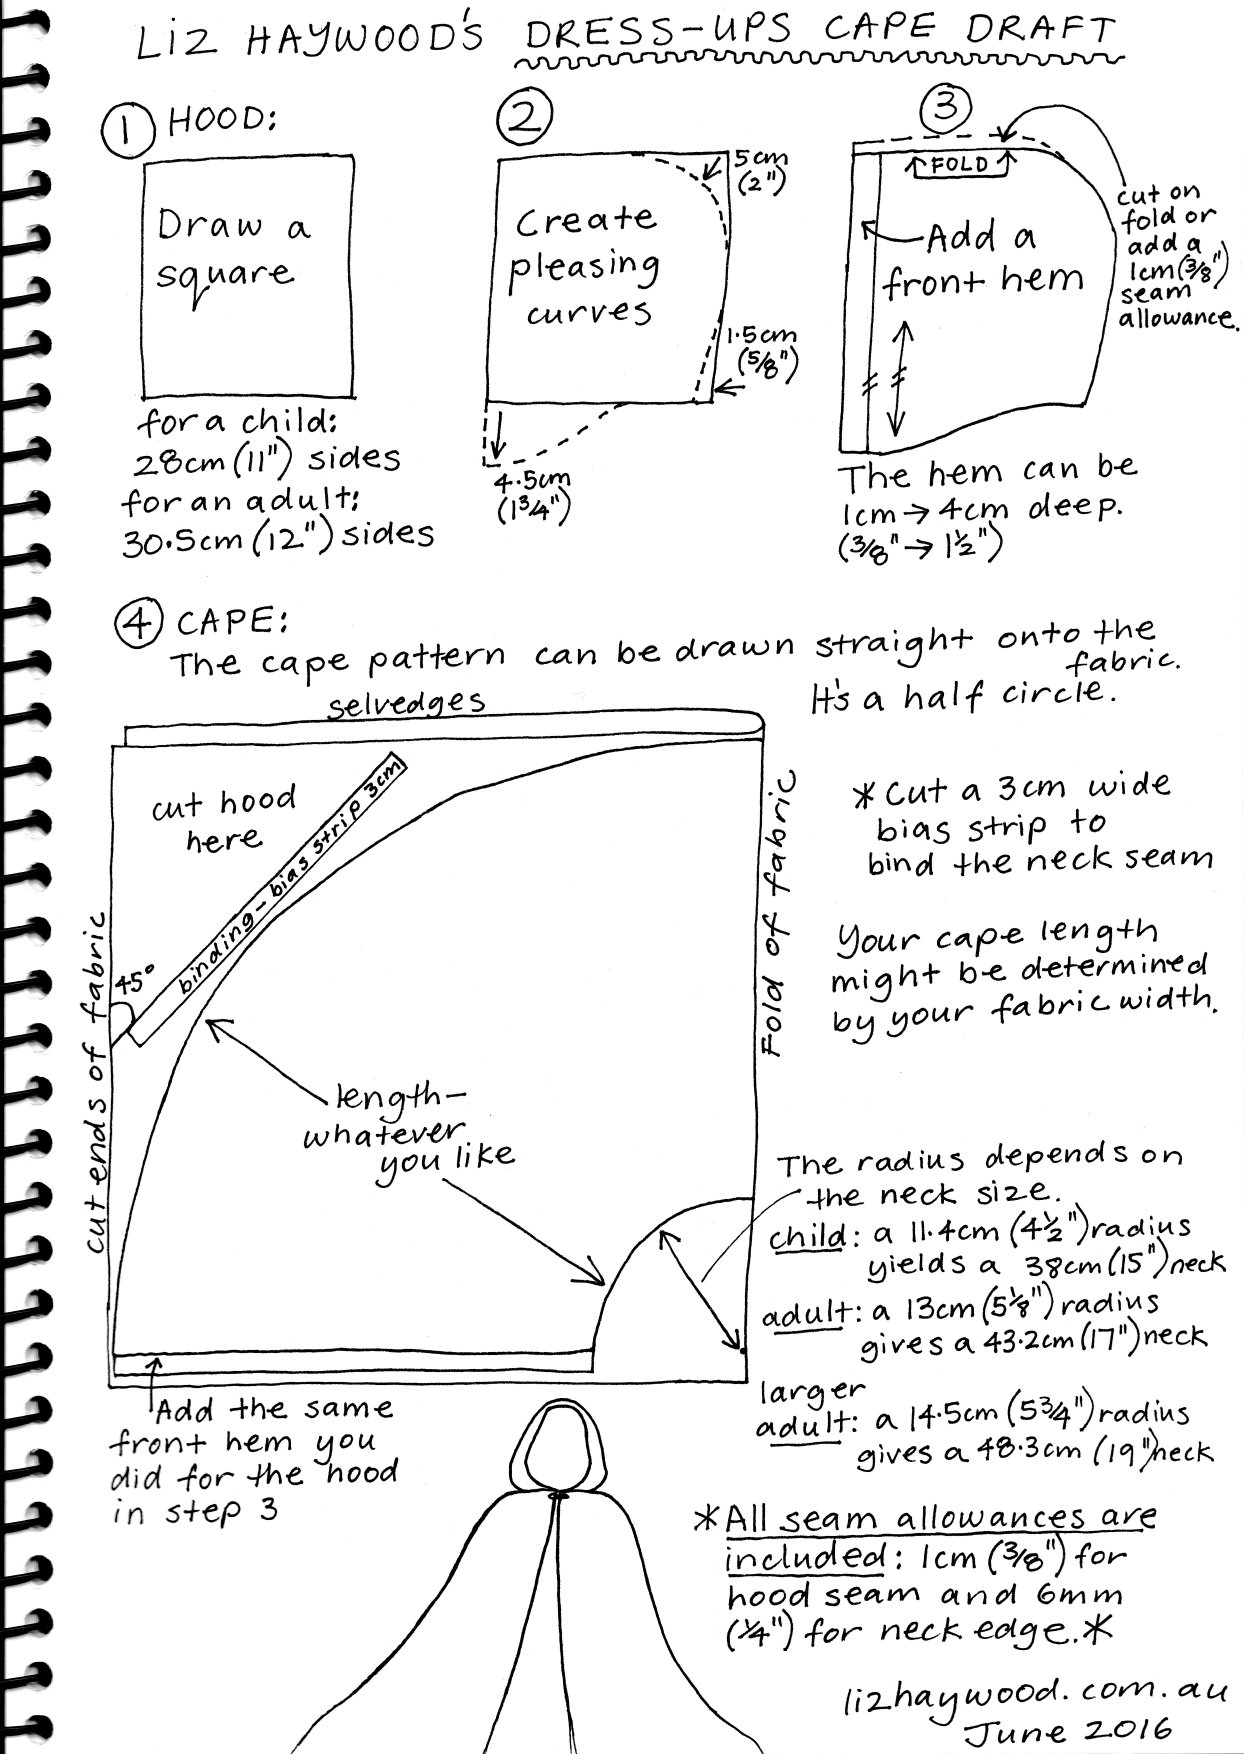 LIZ HAYWOOD'S DRESS-UPS CAPE DRAFT
1 HOOD:
Draw a
square
for a child:
28cm (11") sides
for an adult:
30.5cm (12") sides
2
5cm
(2")
Create
pleasing
curves
1.5cm
(5/8")
4.5cm
(1 3/4")
3
FOLD
cut on
fold or
add a
1cm (3/8")
seam
allowance.
Add a
front hem
The hem can be
1cm → 4cm deep.
(3/8" → 1 1/2")
4 CAPE:
The cape pattern can be drawn straight onto the
fabric.
It's a half circle.
selvedges
cut hood
here
binding - bias strip 3cm
45°
cut ends of fabric
Fold of fabric
length -
whatever
you like
* Cut a 3cm wide
bias strip to
bind the neck seam
Your cape length
might be determined
by your fabric width.
The radius depends on
the neck size.
child: a 11.4cm (4 1/2") radius
yields a 38cm (15") neck
adult: a 13cm (5 1/8") radius
gives a 43.2cm (17") neck
larger
adult: a 14.5cm (5 3/4") radius
gives a 48.3cm (19") neck
Add the same
front hem you
did for the hood
in step 3
* All seam allowances are
included: 1cm (3/8") for
hood seam and 6mm
(1/4") for neck edge. *
lizhaywood.com.au
June 2016